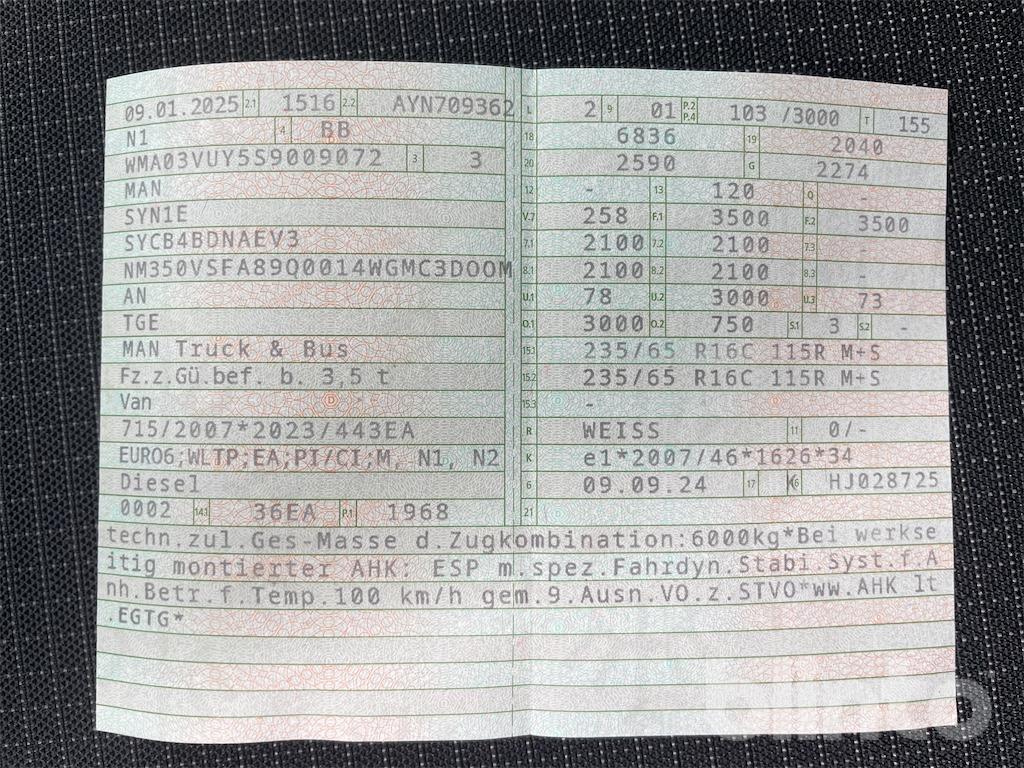 09.01.2025 2.1 1516 2.2 AYN709362 L 2 9 01 P.2 P.4 103 /3000 T 155
N1 4 BB 18 6836 19 2040
WMA03VUY5S9009072 3 3 20 2590 G 2274
MAN 12 - 13 120 Q -
SYN1E V.7 258 F.1 3500 F.2 3500
SYCB4BDNAEV3 7.1 2100 7.2 2100 7.3 -
NM350VSFA89Q0014WGMC3DOOM 8.1 2100 8.2 2100 8.3 -
AN U.1 78 U.2 3000 U.3 73
TGE O.1 3000 O.2 750 S.1 3 S.2 -
MAN Truck & Bus 15.1 235/65 R16C 115R M+S
Fz.z.Gü.bef. b. 3,5 t 15.2 235/65 R16C 115R M+S
Van 15.3 -
715/2007*2023/443EA R WEISS 11 0/-
EURO6;WLTP;EA;PI/CI;M, N1, N2 K e1*2007/46*1626*34
Diesel 6 09.09.24 17 K 16 HJ028725
0002 14.1 36EA P.1 1968 21
techn.zul.Ges-Masse d.Zugkombination:6000kg*Bei werkse
itig montierter AHK: ESP m.spez.Fahrdyn.Stabi.Syst.f.A
nh.Betr.f.Temp.100 km/h gem.9.Ausn.VO.z.STVO*ww.AHK lt
.EGTG*